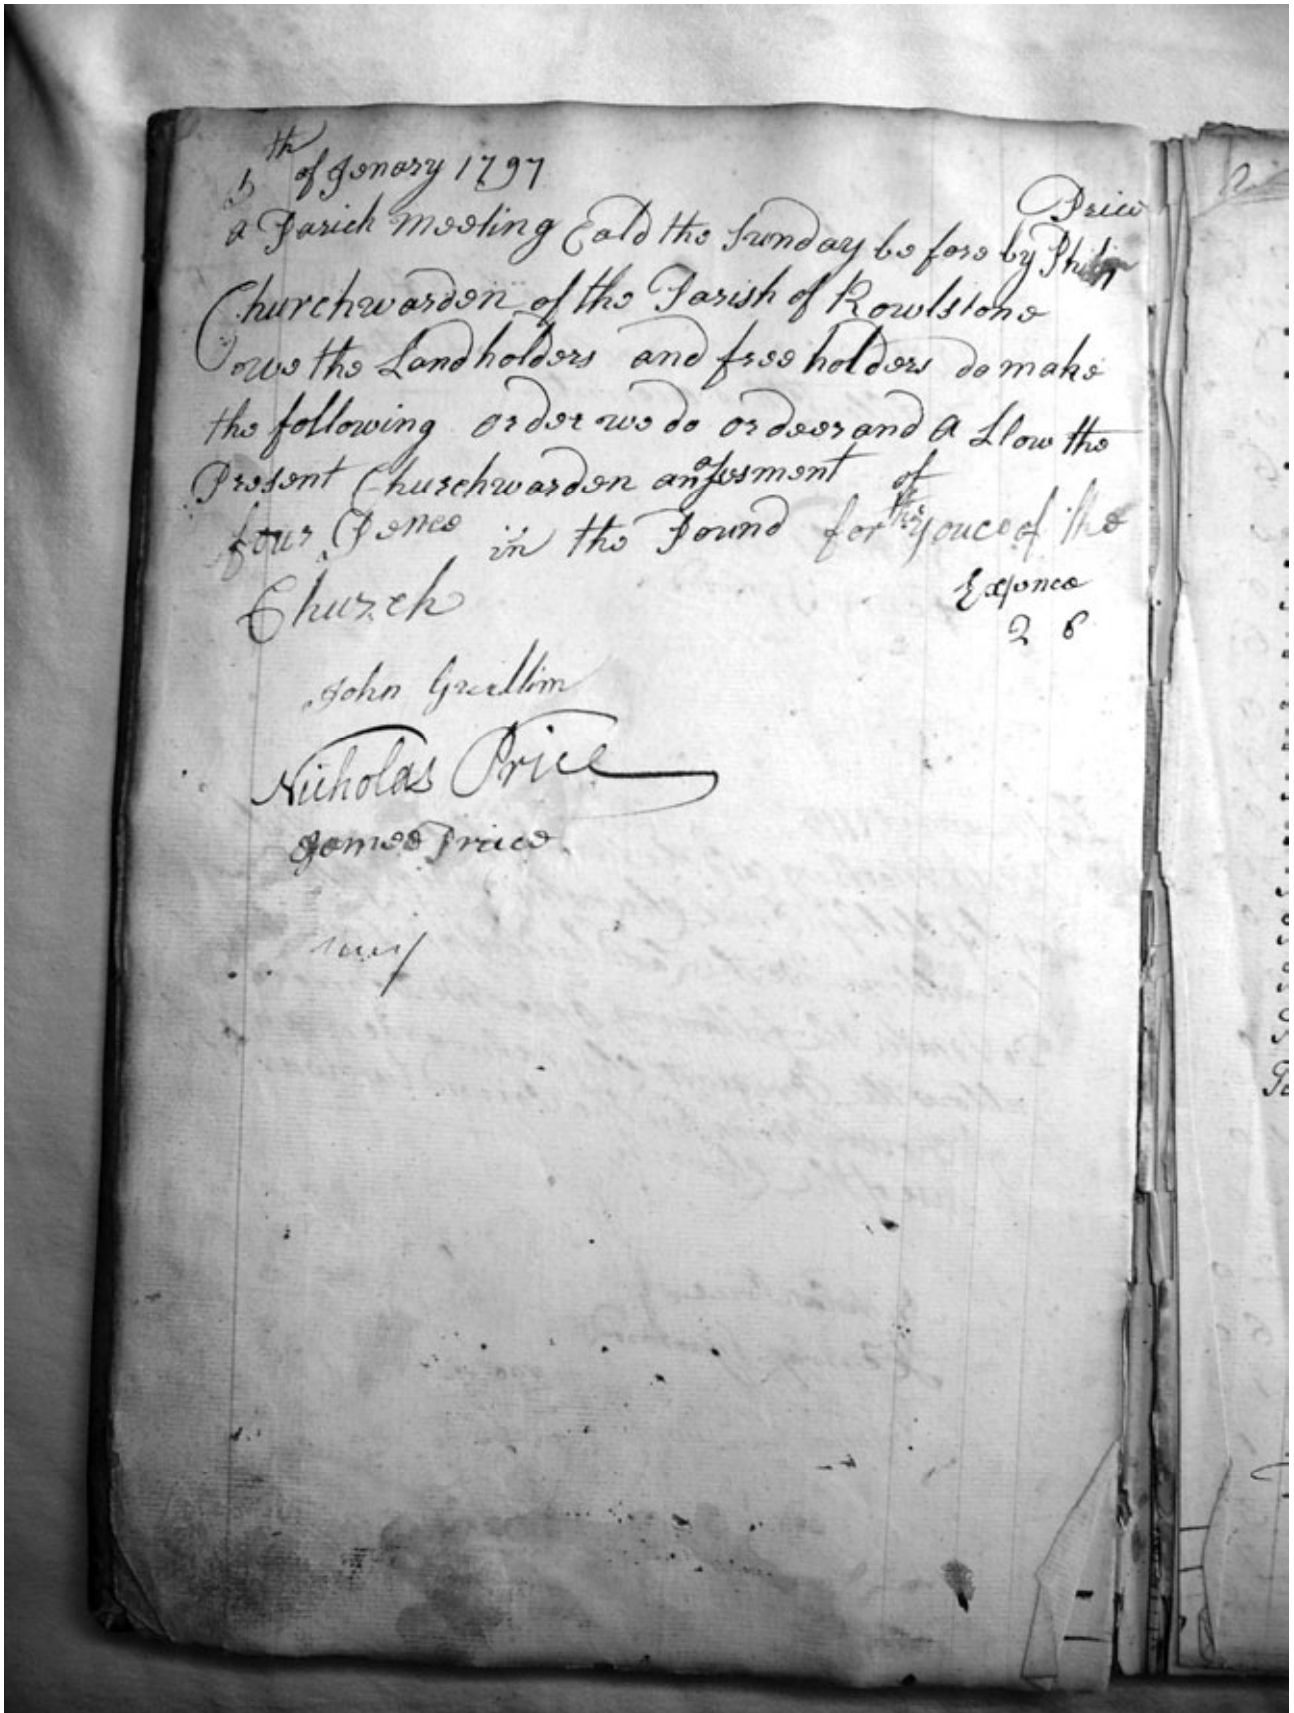 5th of Jenary 1797
Price
a Parich meeting Cald the Sunday be fore by Philip
Churchwarden of the Parish of Rowlstone
owe the Landholders and free holders do make
the following order we do ordeer and A Llow the
Present Churchwarden an assesment of
four Pence in the Pound for the youce of the
Church
Expence
2 6
John
Nicholas Price
James Price